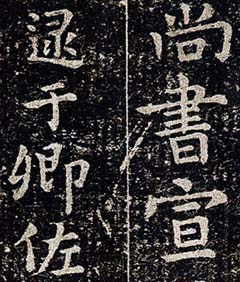 尚書宣
逮于卿佐